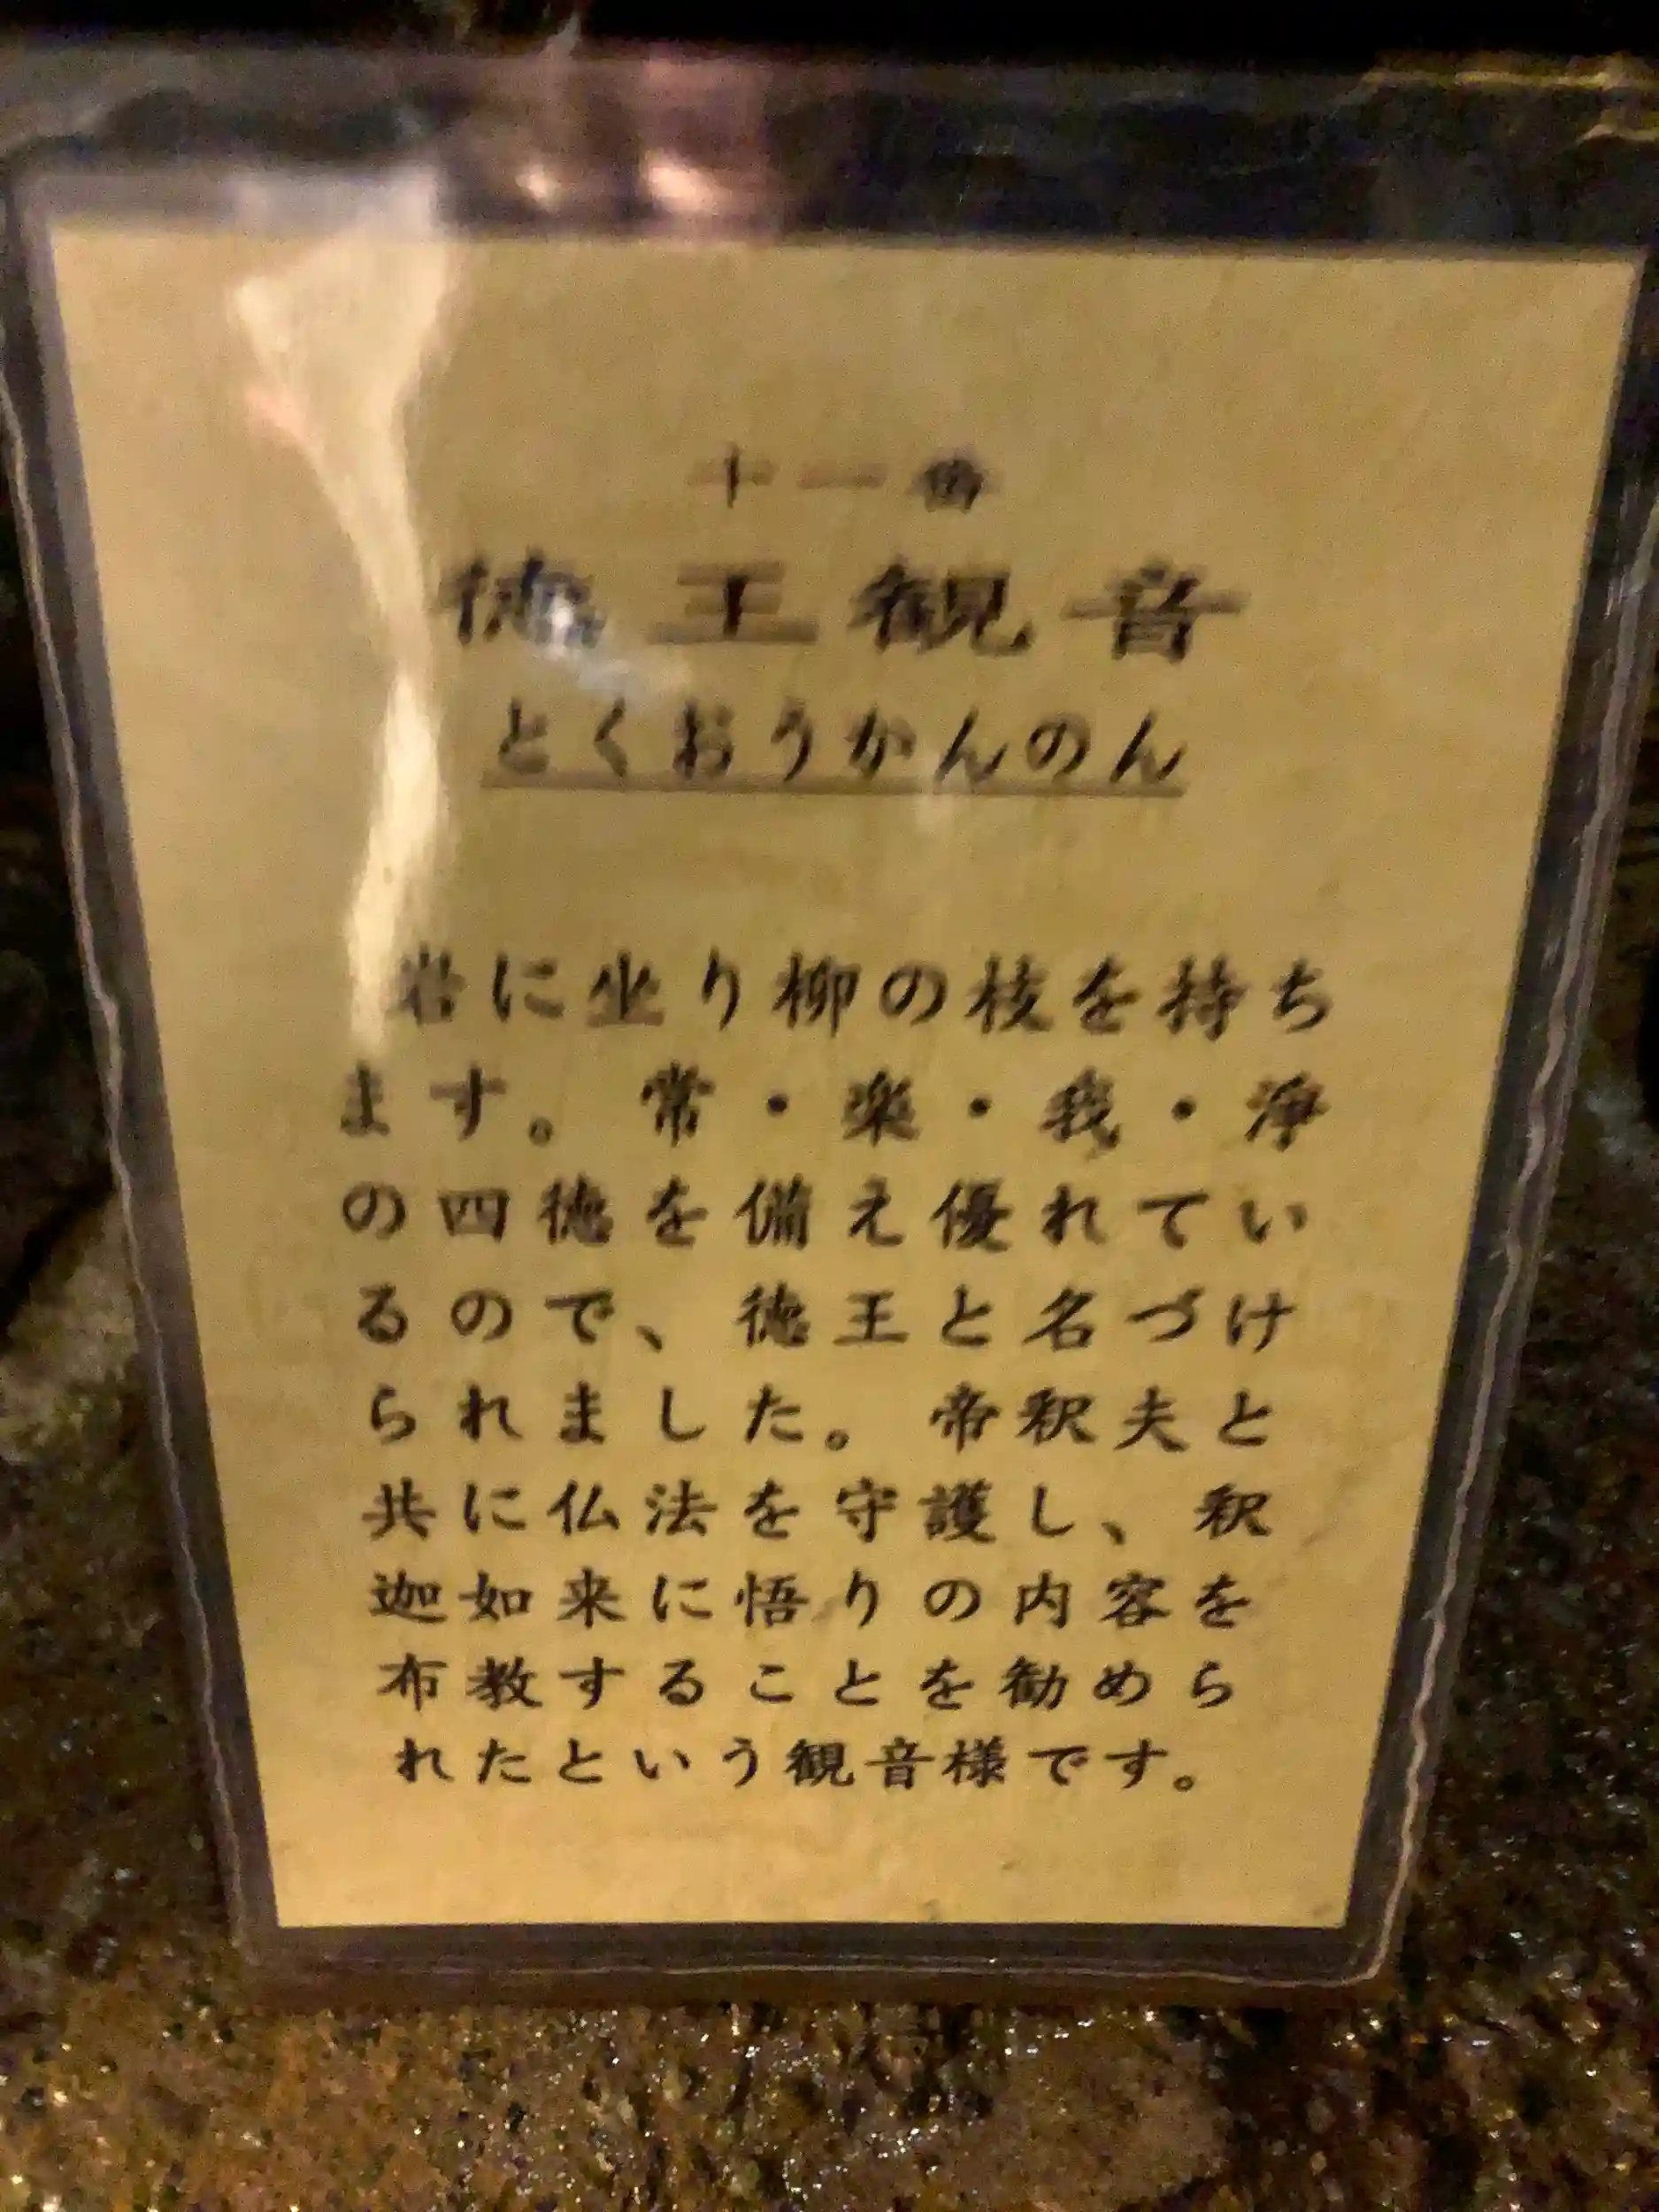 十一番
徳王観音
とくおうかんのん
岩に坐り柳の枝を持ち
ます。常・楽・我・浄
の四徳を備え優れてい
るので、徳王と名づけ
られました。帝釈夫と
共に仏法を守護し、釈
迦如来に悟りの内容を
布教することを勧めら
れたという観音様です。